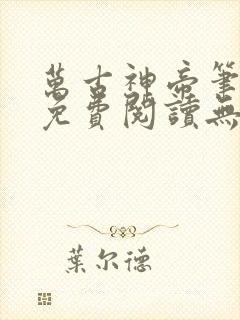 萬古神帝筆
免費閱讀無
葉尔德